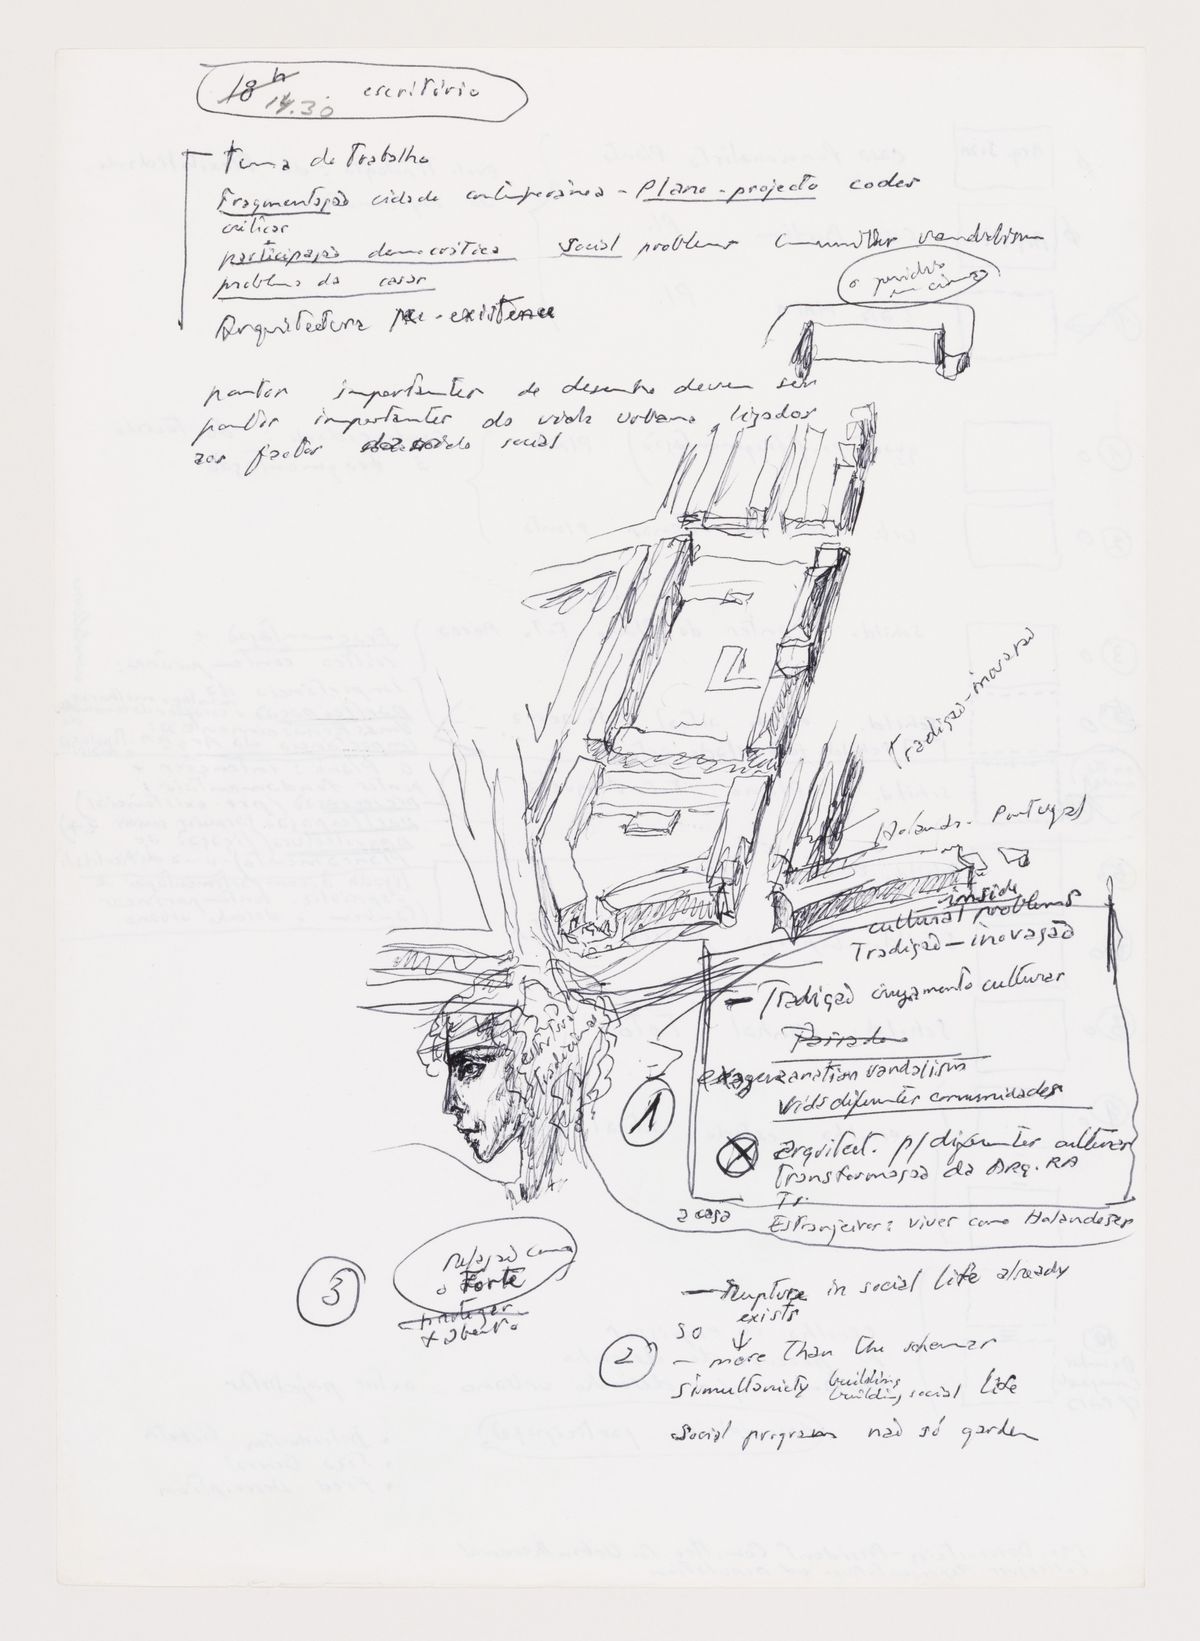 18h
14.30 escritório
Tema de Trabalho
Fragmentação cidade contemporânea - Plano - projecto codes
criticar
participação democrática Social problems Committer vandalism
problema da casa
Arquitectura pre-existence
o
em cima
pontos importantes de desenho devem ser
pontos importantes da vida urbana ligados
aos factos social
Tradição - inovação
Holanda - Portugal
inside
cultural problems
Tradição - inovação
- Tradição cruzamento culturas
Passado
exageration vandalism
vida diferentes comunidades
1
arquitect. p/ diferentes culturas
Transformação da Arq. RA
Tr.
a casa
Estranjeiros: viver como Holandeses
3
relação com
o Forte
proteger
+ aberto
- Rupture in social life already
exists
so ↓
2
- more than the schemas
simultaniety building
building social life
Social program não só garden